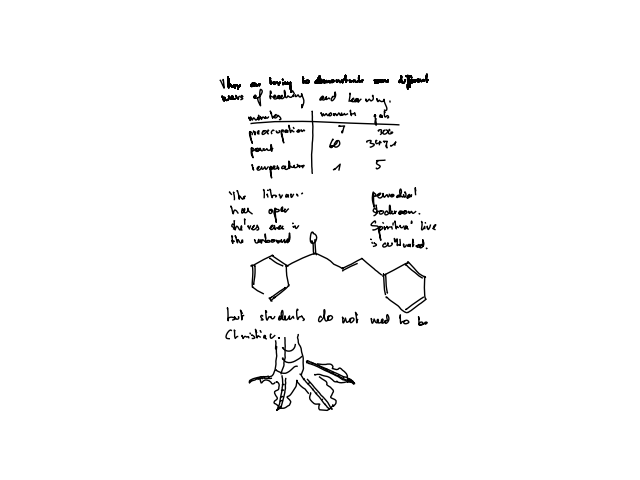 They are trying to demonstrate some different
ways of teaching and learning.
minutes moments jobs
preoccupation 7 306
point 60
temperature 1 5
The library
has open
shelves and in
the unbound
periodical
Stockroom.
Spiritual live
is cultivated.
but students do not need to be
Christian.